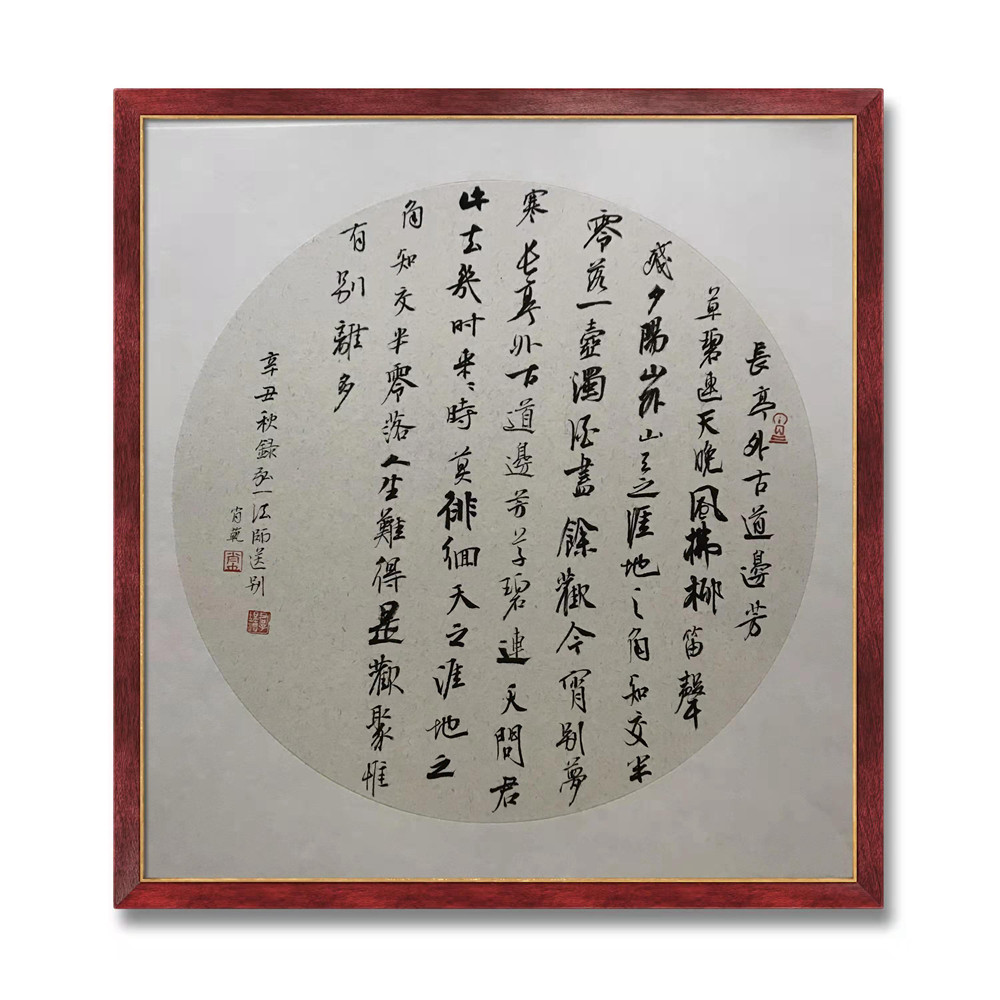 長亭外古道邊芳
草碧連天晚風拂柳笛聲
殘夕陽山外山天之涯地之角知交半
零落一壺濁酒盡餘歡今宵別夢
寒長亭外古道邊芳草碧連天問君
此去幾时来来時莫徘徊天之涯地之
角知交半零落人生難得是歡聚惟
有別離多
辛丑秋録弘一法師送别
肖